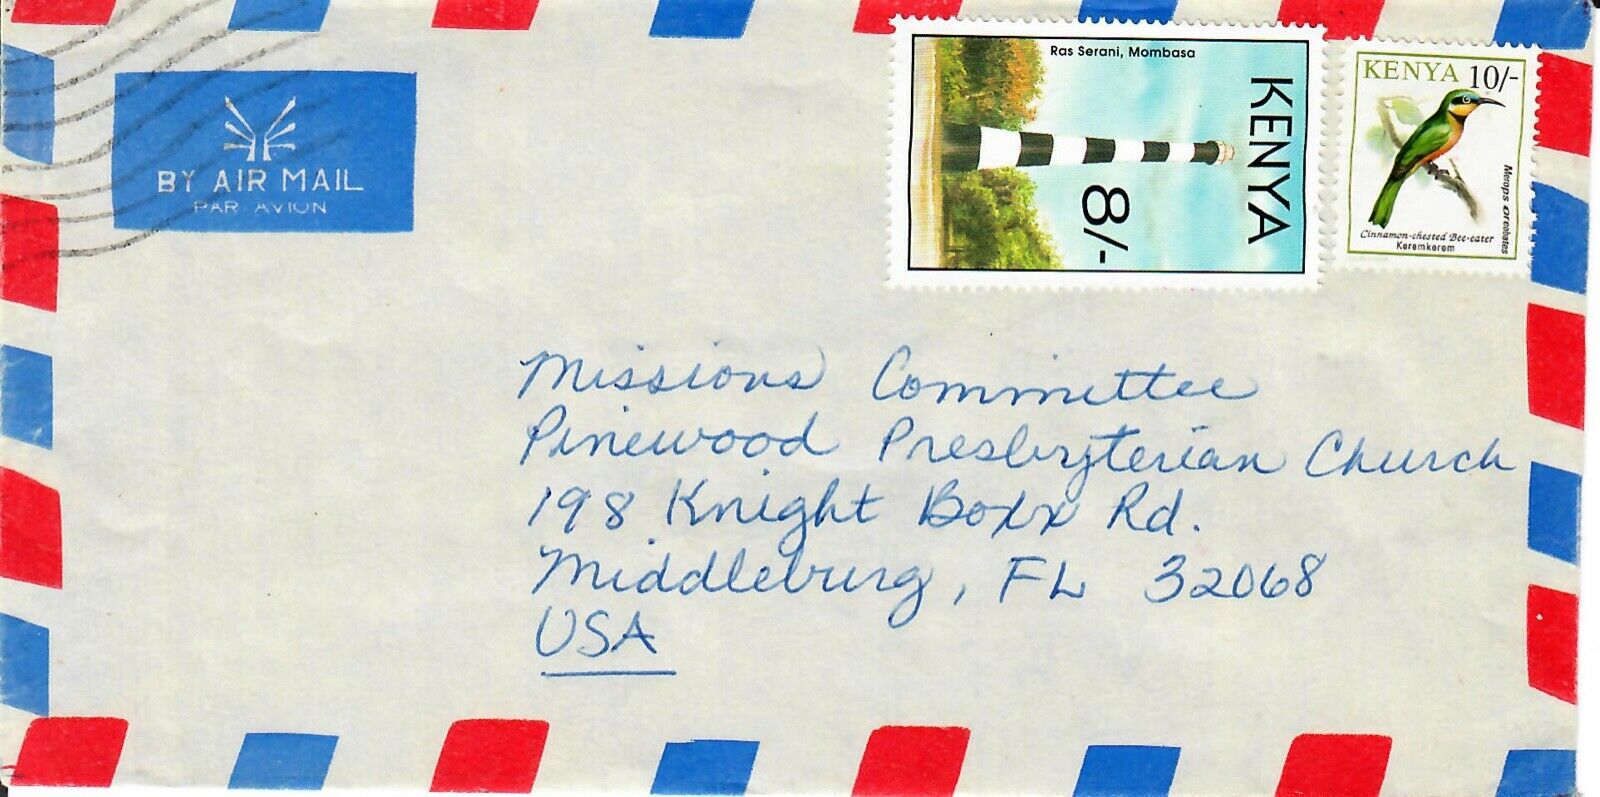 BY AIR MAIL
PAR AVION
Ras Serani, Mombasa
KENYA
8/-
KENYA 10/-
Merops oreobates
Cinnamon-chested Bee-eater
Keremkerem
Missions Committee
Pinewood Presbyterian Church
198 Knight Boxx Rd.
Middleburg, FL 32068
USA